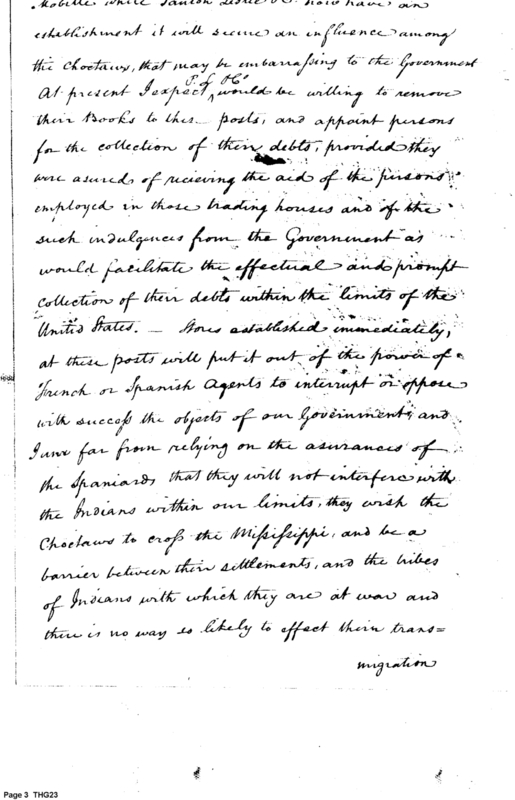 Mobille while Panton Leslie &c. now have an
establishment it will secure an influence among
the Choctaws, that may be embarrassing to the Government
At present I expect P. L & Co would be willing to remove
their Books to these posts, and appoint persons
for the collection of their debts, provided they
were asured of recieving the aid of the persons
employed in those trading houses and of the
such indulgences from the Government as
would facilitate the effectual and prompt
collection of their debts within the limits of the
United States. — Stores established immediately,
at these posts will put it out of the power of
French or Spanish Agents to interrupt or oppose
with success the objects of our Government, and
I am far from relying on the asurances of
the Spaniards that they will not interfere with
the Indians within our limits, they wish the
Choctaws to cross the Missisippi, and be a
barrier between their settlements, and the tribes
of Indians with which they are at war and
there is no way so likely to effect their trans=
migration
Page 3 THG23